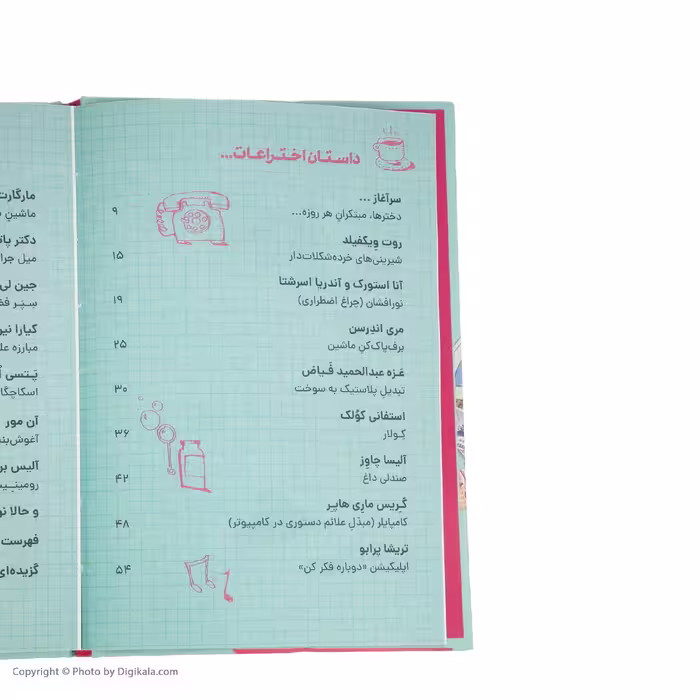 داستان اختراعات...
سرآغاز ...
دخترها، مبتکرانِ هر روزه...
۹
روت ویکفیلد
شیرینی‌های خرده‌شکلات‌دار
۱۵
آنا استورک و آندریا اسرشتا
نورافشان (چراغ اضطراری)
۱۹
مری اندرسن
برف‌پاک‌کن ماشین
۲۵
عَزه عبدالحمید فَیاض
تبدیلِ پلاستیک به سوخت
۳۰
استفانی کوُلک
کِولار
۳۶
آلیسا چاوِز
صندلی داغ
۴۲
گریس ماریِ هاپر
کامپایلر (مبدّل علائم دستوری در کامپیوتر)
۴۸
تریشا پرابو
اپلیکیشن «دوباره فکر کن»
۵۴
مارگارت
ماشینِ
دکتر
میل
جین لی
سِپَر
کیارا
مبارزه
پَتسی
آن مور
آلیس
و حالا
فهرست
Copyright © Photo by Digikala.com